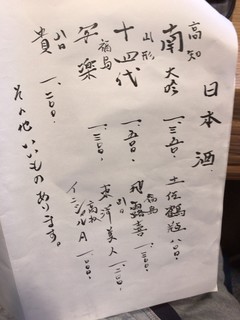 日本酒
高知
南 大吟 一、三五〇、 土佐鶴 八〇〇、
山形 福島
十四代 一、五〇〇、 飛露喜 一、三〇〇、
福島 山口
写楽 一、三〇〇、 東洋美人 一、二〇〇、
山口
貴 一、二〇〇、 イニシャルA 一、〇〇〇、
その他いいものあります。